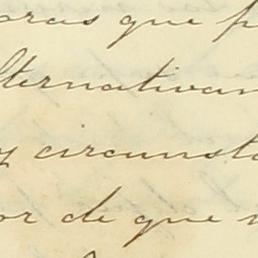 oras que p
lternativam
y circunsta
or de que n